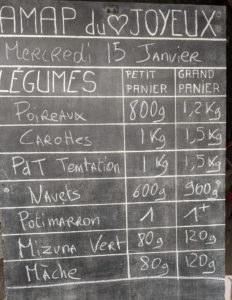 AMAP du ♡ JOYEUX
Mercredi 15 Janvier
LÉGUMES PETIT PANIER GRAND PANIER
Poireaux 800g 1,2Kg
Carottes 1Kg 1,5Kg
PdT Tentation 1Kg 1,5Kg
Navets 600g 900g
Potimarron 1 1+
Mizuna Vert 80g 120g
Mâche 80g 120g